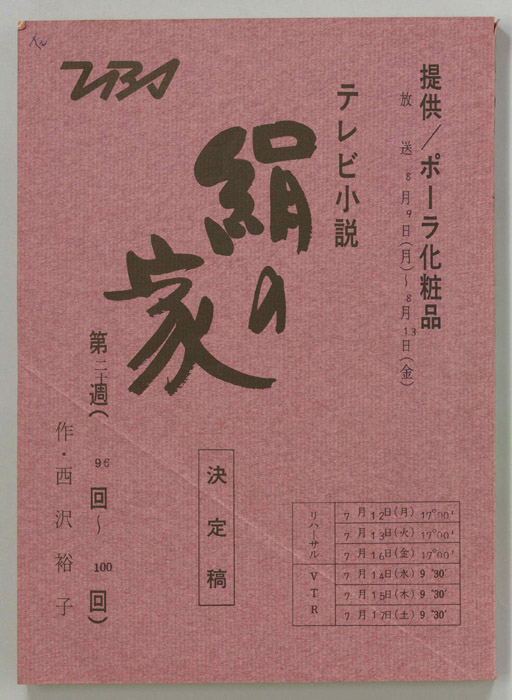 TBS
提供/ポーラ化粧品
放送 8月9日(月)~8月13日(金)
テレビ小説
絹の家
第二十週(96回~100回)
作・西沢裕子
決定稿
リハーサル
7月12日(月) 17°00'
7月13日(火) 17°00'
7月16日(金) 17°00'
VTR
7月14日(水) 9°30'
7月15日(木) 9°30'
7月17日(土) 9°30'